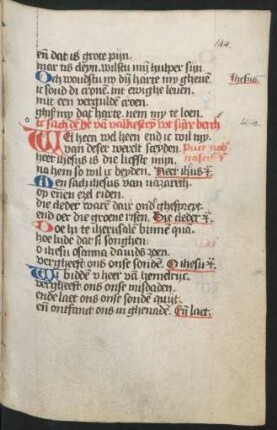 144.
en̄ dat is grote pijn.
mar us deyn. wilstu mÿ hulper sijn
Och woudstu my dÿ harte my gheuē.
ic sond di cronē. int ewighe leuen.
mit een verguldē croen.
ghif my dat harte. nem my te loen.
Wel heen wel heen ic wil my.
van deser werelt sceyden.
heer ihesus is die liefste mijn
na hem so wil ic beyden. Heer ihūs
Men sach ihesus van nazareth
op enen ezel riden.
die cleder warē daer ond' ghespreyt
end oec die groene risen. Die cleder
Doe hi te iherusalē binnē qua.
hoe lude dat si songhen
o ihesu osanna dauids zoen.
vergheeft ons onse sondē. O ihesu
Wi biddē v heer van hemelrijc.
vergheeft ons onse misdaden.
ende laet ons onse sondē quijt.
en̄ ontfanct ons in ghenadē. En̄ laet.